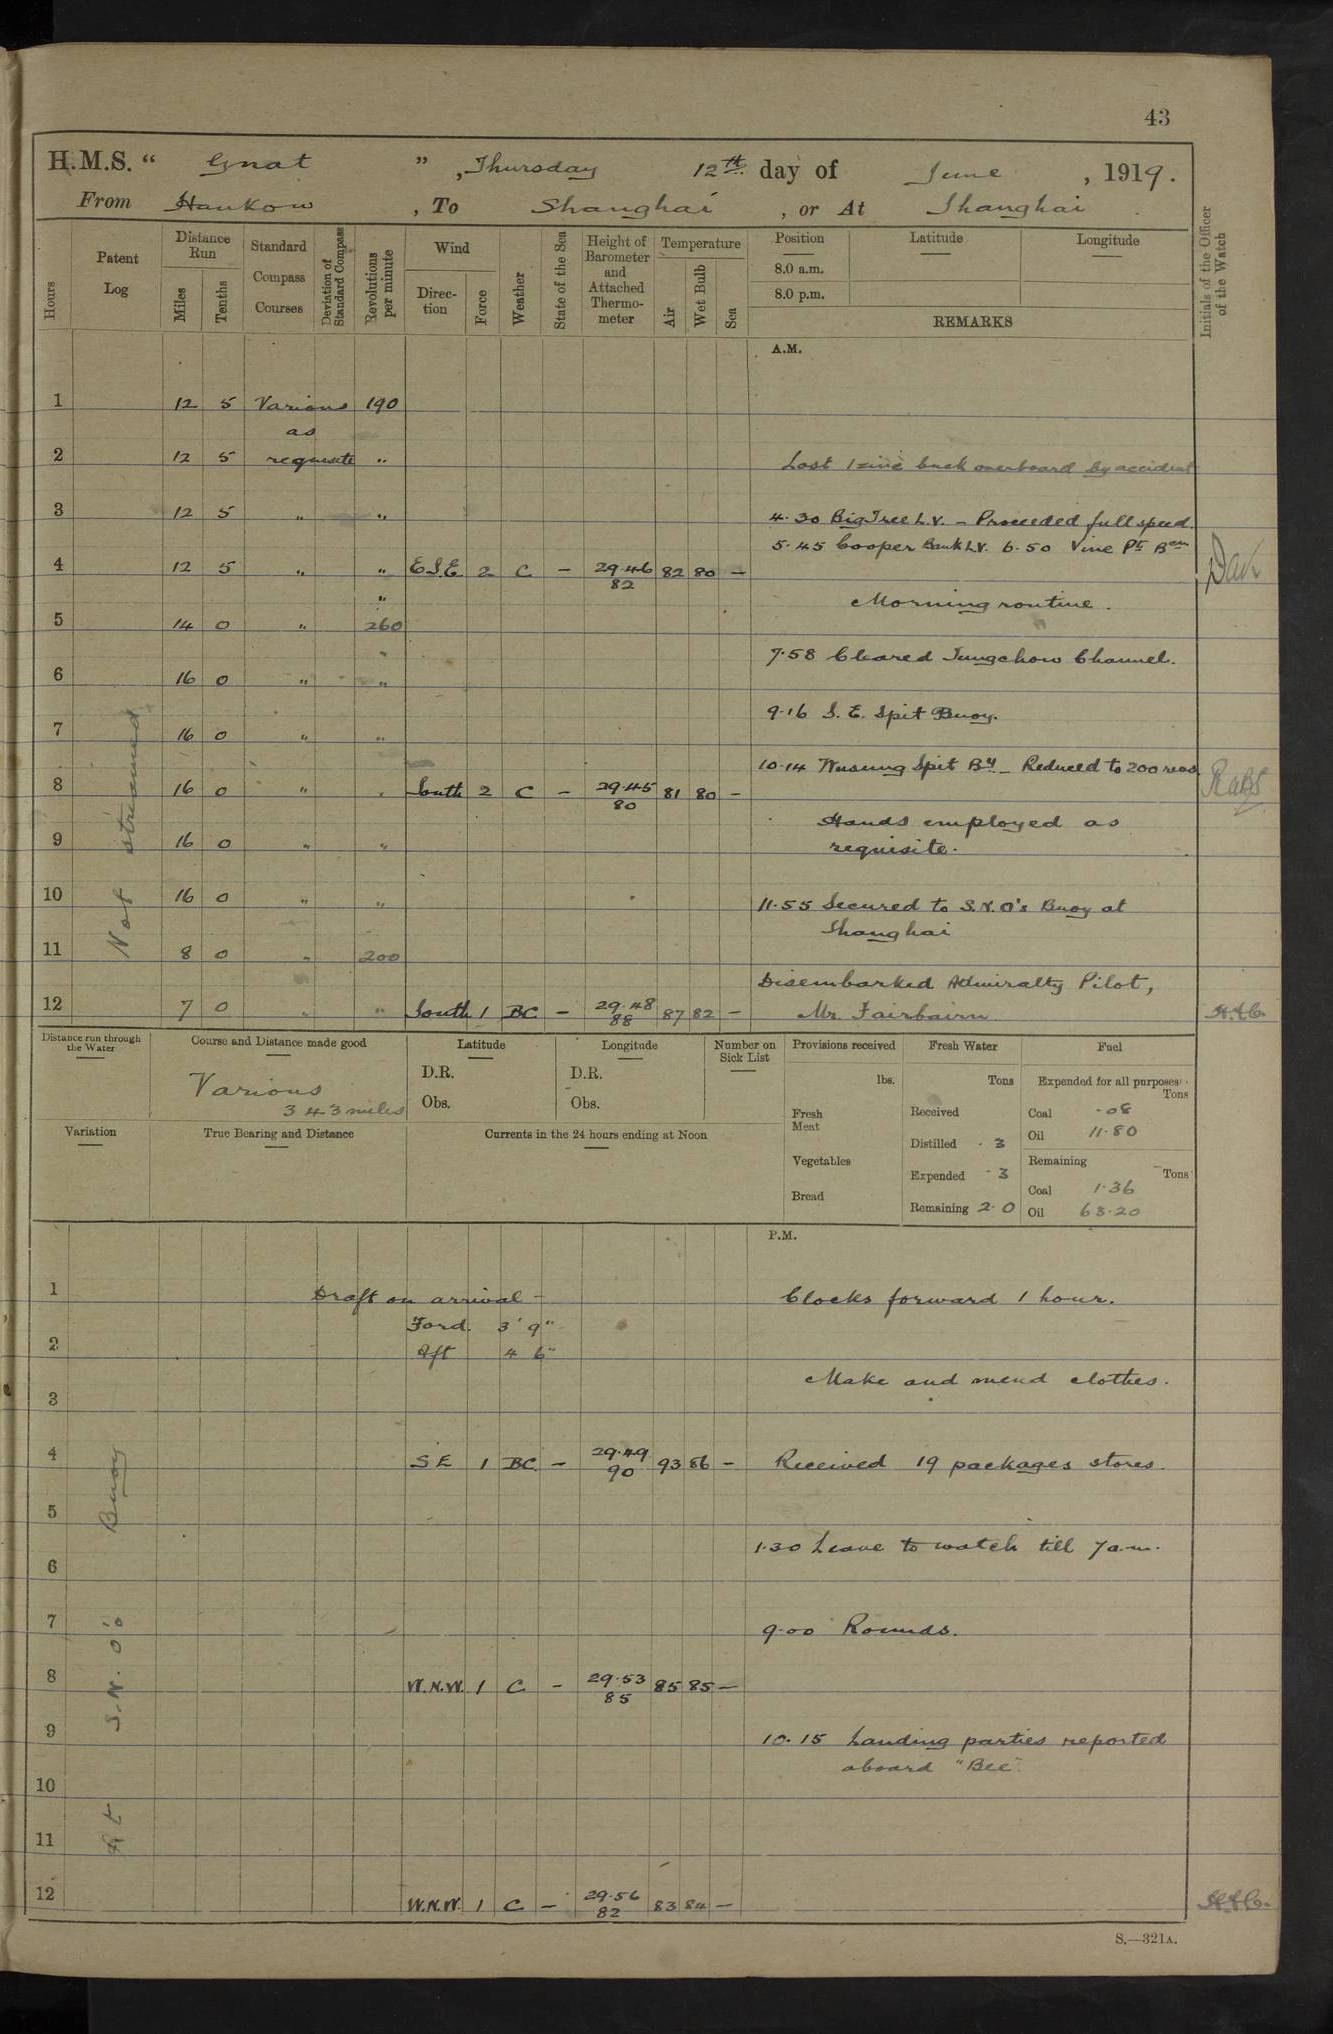 43
H.M.S. " Gnat " , Thursday 12th day of June , 1919.
From Hankow , To Shanghai , or At Shanghai
Hours
Patent Log
Distance Run
Miles
Tenths
Standard Compass Courses
Deviation of Standard Compass
Revolutions per minute
Wind
Direction
Force
Weather
State of the Sea
Height of Barometer and Attached Thermometer
Temperature
Air
Wet Bulb
Sea
Position
8.0 a.m.
8.0 p.m.
Latitude
Longitude
REMARKS
Initials of the Officer of the Watch
A.M.
1 12 5 Various 190
as
2 12 5 requisite " Lost 1 overboard by accident
3 12 5 " " 4.30 Big Tree L.V. – Proceeded full speed.
5.45 Cooper Bank L.V. 6.50 Vine Pt Bcn
4 12 5 " " E.S.E. 2 C – 29.46 82 82 80 –
" Morning routine.
5 14 0 " 260
7.58 Cleared Tungchow Channel.
6 16 0 " "
9.16 S.E. Spit Buoy.
7 16 0 " "
10.14 Wusung Spit By – Reduced to 200 revs
8 16 0 " " South 2 C – 29.45 80 81 80 –
Hands employed as
requisite.
9 16 0 " "
10 16 0 " " 11.55 Secured to S.N.O's Buoy at
Shanghai
11 8 0 " 200
Disembarked Admiralty Pilot,
12 7 0 " " South 1 BC – 29.48 88 87 82 – Mr. Fairbairn
Not streamed
Distance run through the Water
Course and Distance made good
Various
343 miles
Latitude
D.R.
Obs.
Longitude
D.R.
Obs.
Number on Sick List
Provisions received
lbs.
Fresh Meat
Vegetables
Bread
Fresh Water
Tons
Received
Distilled .3
Expended .3
Remaining 2.0
Fuel
Expended for all purposes
Tons
Coal .08
Oil 11.80
Remaining
Tons
Coal 1.36
Oil 63.20
Variation
True Bearing and Distance
Currents in the 24 hours ending at Noon
P.M.
1 Draft on arrival – Clocks forward 1 hour.
Ford. 3' 9"
2 Aft 4 6"
Make and mend clothes.
3
4 SE 1 BC – 29.49 90 93 86 – Received 19 packages stores.
5
1.30 Leave to watch till 7 a.m.
6
7 9.00 Rounds.
8 W.N.W. 1 C – 29.53 85 85 85 –
9 10.15 Landing parties reported
aboard "Bee".
10
11
12 W.N.W. 1 C – 29.56 82 83 84 –
At S.N.O's Buoy
S.—321A.